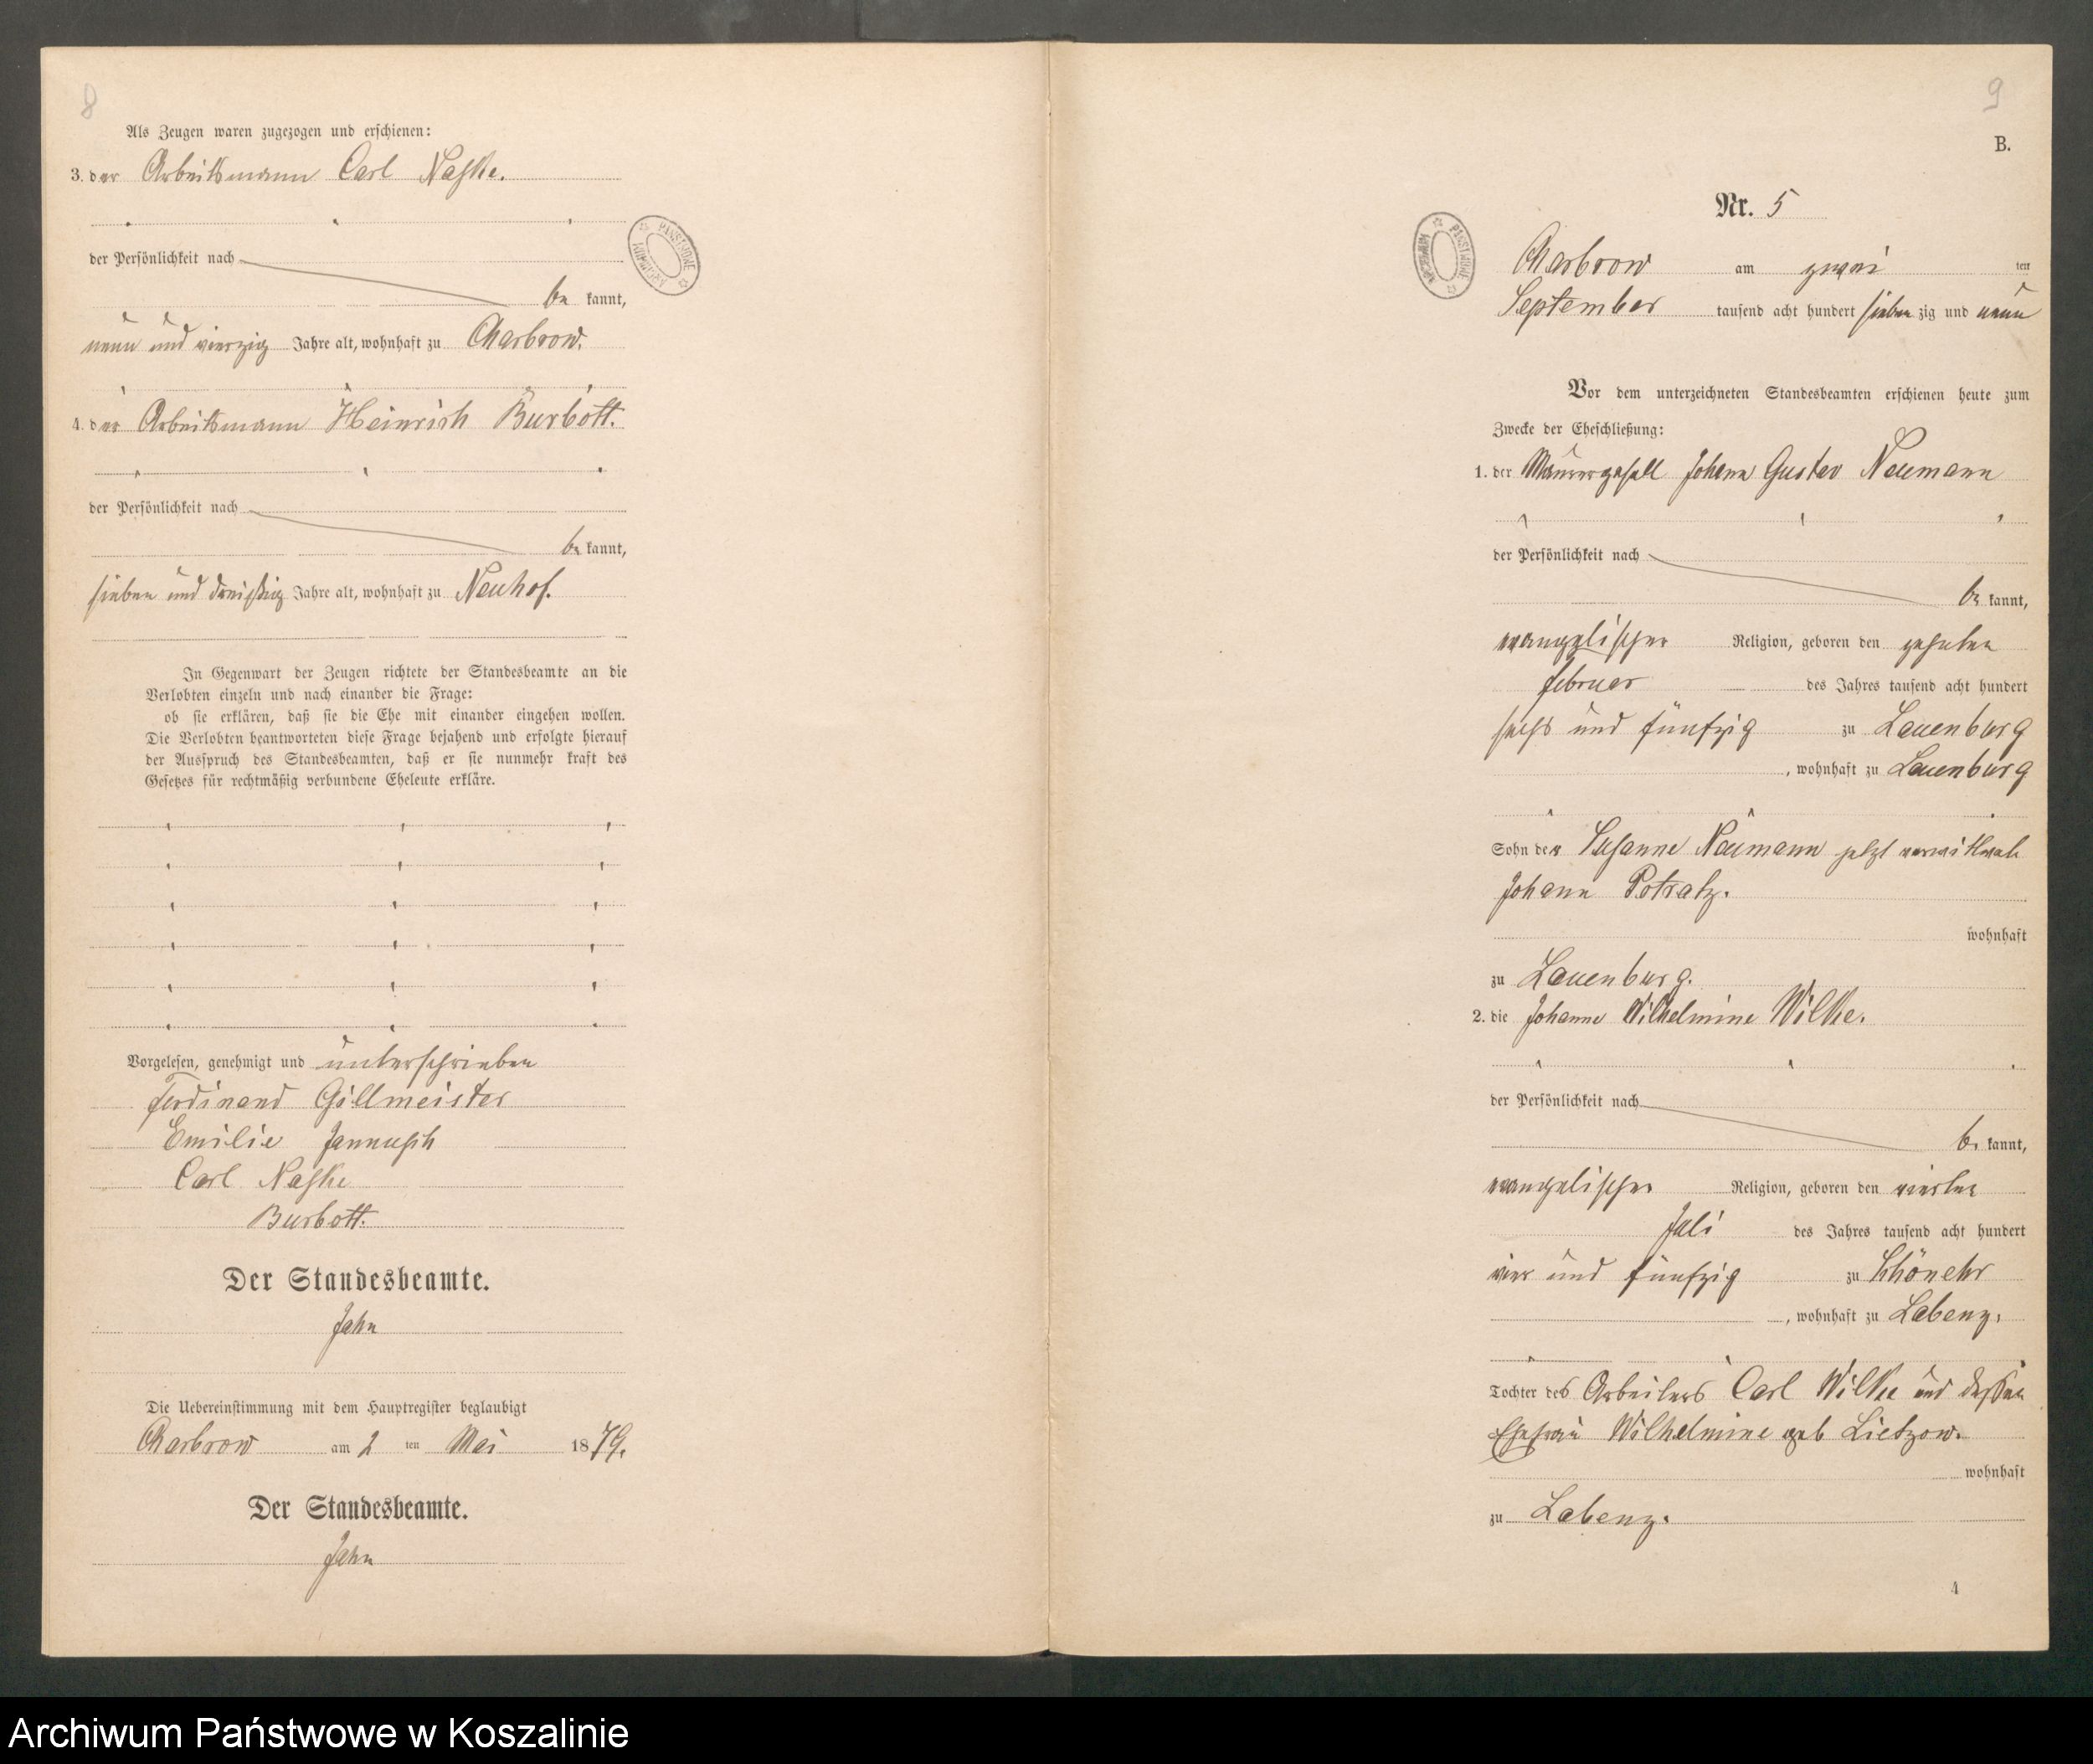 8
Als Zeugen waren zugezogen und erschienen:
3. der Arbeitsmann Carl Naſke.
der Persönlichkeit nach
be kannt,
neun und vierzig Jahre alt, wohnhaft zu Charbrow.
4. der Arbeitsmann Heinrich Burbott.
der Persönlichkeit nach
be kannt,
sieben und dreißig Jahre alt, wohnhaft zu Neuhof.
In Gegenwart der Zeugen richtete der Standesbeamte an die
Verlobten einzeln und nach einander die Frage:
ob sie erklären, daß sie die Ehe mit einander eingehen wollen.
Die Verlobten beantworteten diese Frage bejahend und erfolgte hierauf
der Ausspruch des Standesbeamten, daß er sie nunmehr kraft des
Gesetzes für rechtmäßig verbundene Eheleute erkläre.
Vorgelesen, genehmigt und unterschrieben
Ferdinand Gillmeister
Emilie Jannusch
Carl Naſke
Burbott.
Der Standesbeamte.
Jahn
Die Uebereinstimmung mit dem Hauptregister beglaubigt
Charbrow am 2 ten Mai 1879.
Der Standesbeamte.
Jahn
9
B.
Nr. 5
Charbrow am zwei ten
September tausend acht hundert sieben zig und neun
Vor dem unterzeichneten Standesbeamten erschienen heute zum
Zwecke der Eheschließung:
1. der Maurergesell Johann Gustav Neumann
der Persönlichkeit nach
be kannt,
evangelischer Religion, geboren den zehnten
Februar des Jahres tausend acht hundert
sechs und fünfzig zu Lauenburg
, wohnhaft zu Lauenburg
Sohn der Susanne Neumann jetzt verwittwete
Johann Potratz.
wohnhaft
zu Lauenburg.
2. die Johanne Wilhelmine Wilke.
der Persönlichkeit nach
be kannt,
evangelischer Religion, geboren den vierten
Juli des Jahres tausend acht hundert
vier und fünfzig zu Schönehr
, wohnhaft zu Labenz.
Tochter des Arbeiters Carl Wilke und dessen
Ehefrau Wilhelmine geb Lietzow.
wohnhaft
zu Labenz.
4
ARCHIWUM PAŃSTWOWE
ARCHIWUM PAŃSTWOWE
Archiwum Państwowe w Koszalinie